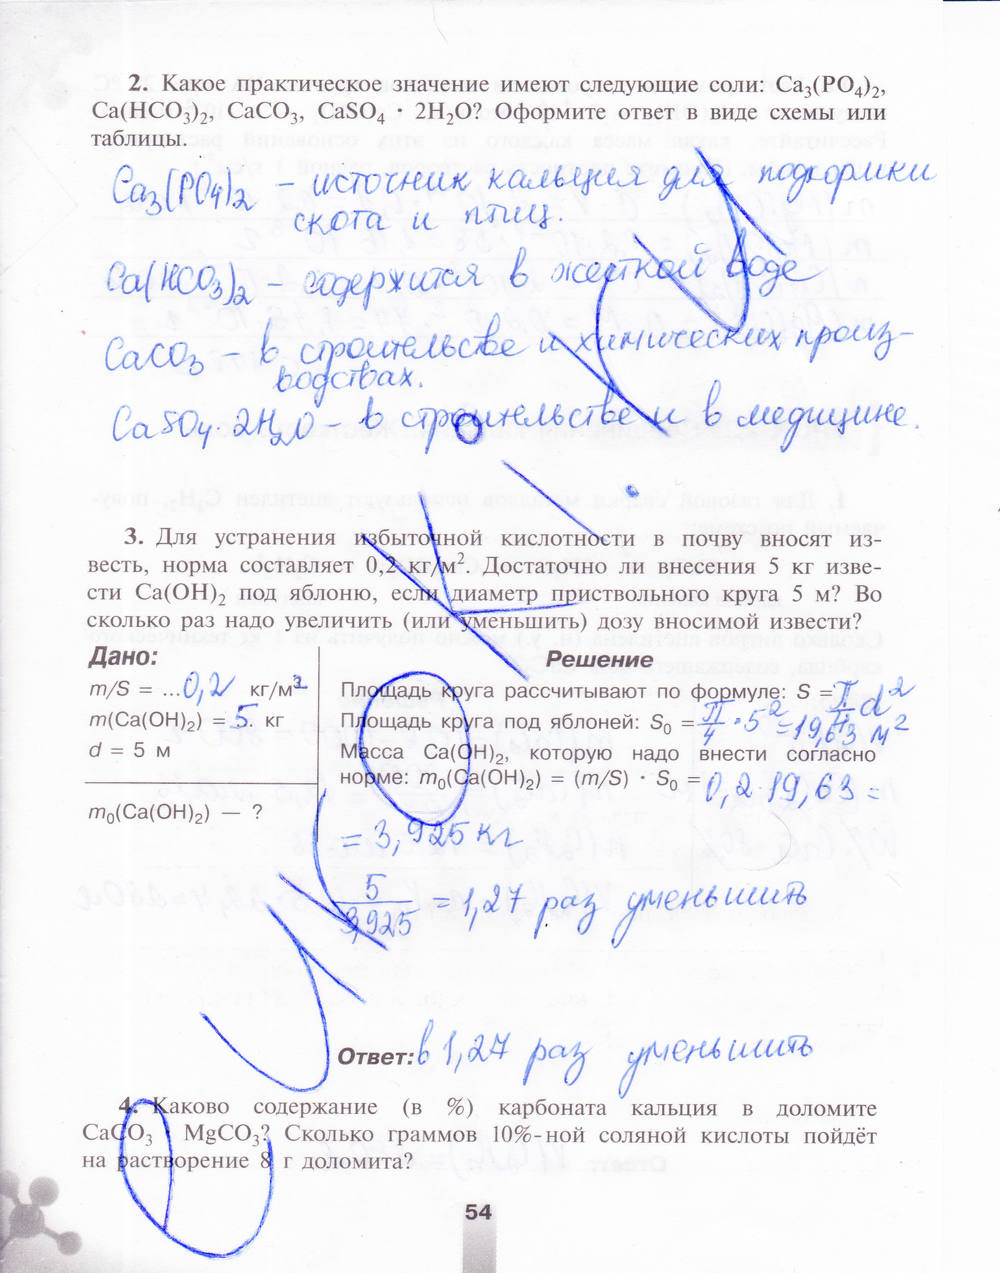 2. Какое практическое значение имеют следующие соли: Ca₃(PO₄)₂,
Ca(HCO₃)₂, CaCO₃, CaSO₄ · 2H₂O? Оформите ответ в виде схемы или
таблицы.
Ca₃(PO₄)₂ – источник кальция для подкормки
скота и птиц.
Ca(HCO₃)₂ – содержится в жесткой воде
CaCO₃ – в строительстве и химических произ-
водствах.
CaSO₄·2H₂O – в строительстве и в медицине.
3. Для устранения избыточной кислотности в почву вносят из-
весть, норма составляет 0,2 кг/м². Достаточно ли внесения 5 кг изве-
сти Ca(OH)₂ под яблоню, если диаметр приствольного круга 5 м? Во
сколько раз надо увеличить (или уменьшить) дозу вносимой извести?
Дано:
m/S = ...0,2 кг/м²
m(Ca(OH)₂) = 5. кг
d = 5 м
m₀(Ca(OH)₂) — ?
Решение
Площадь круга рассчитывают по формуле: S = π/4 d²
Площадь круга под яблоней: S₀ = π/4 · 5² = 19,63 м²
Масса Ca(OH)₂, которую надо внести согласно
норме: m₀(Ca(OH)₂) = (m/S) · S₀ = 0,2·19,63 =
= 3,925 кг
5/3,925 = 1,27 раз уменьшить
Ответ: в 1,27 раз уменьшить
4. Каково содержание (в %) карбоната кальция в доломите
CaCO₃ · MgCO₃? Сколько граммов 10%-ной соляной кислоты пойдёт
на растворение 8 г доломита?
54